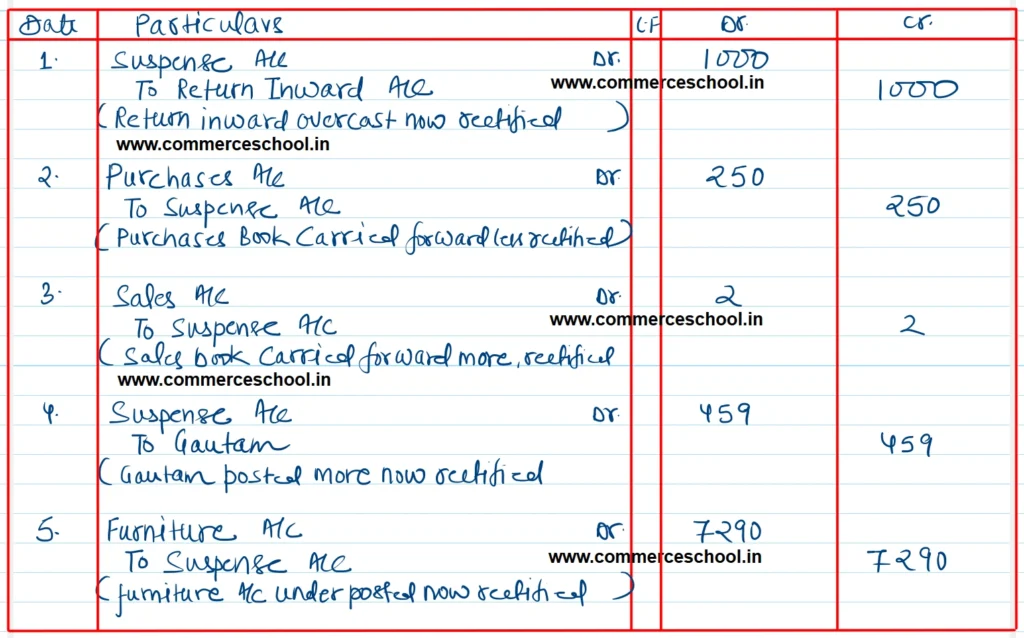 Date Particulars L.F Dr. Cr.
1. Suspense A/c Dr. 1000
www.commerceschool.in
To Return Inward A/c 1000
(Return inward overcast now rectified)
www.commerceschool.in
2. Purchases A/c Dr 250
To Suspense A/c 250
(Purchases Book Carried forward less rectified)
3. Sales A/c Dr. 2
www.commerceschool.in
To Suspense A/c 2
(Sales book Carried forward more, rectified
www.commerceschool.in
4. Suspense A/c Dr. 459
To Gautam 459
(Gautam posted more now rectified
5. Furniture A/c Dr. 7290
www.commerceschool.in
To Suspense A/c 7290
(furniture A/c under posted now rectified)